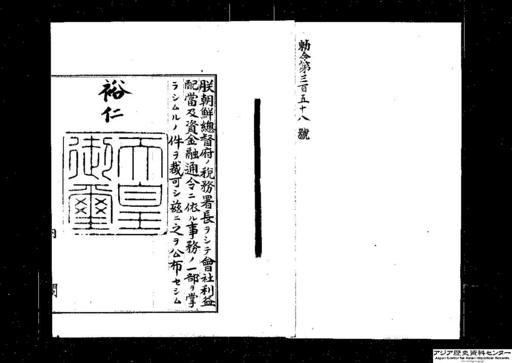 勅令第三百五十八號
朕朝鮮總督府ノ稅務署長ヲシテ會社利益
配當及資金融通令ニ依ル事務ノ一部ヲ掌
ラシムルノ件ヲ裁可シ茲ニ之ヲ公布セシム
裕仁
天皇
御璽
内
閣
アジア歴史資料センター
Japan Center for Asian Historical Records